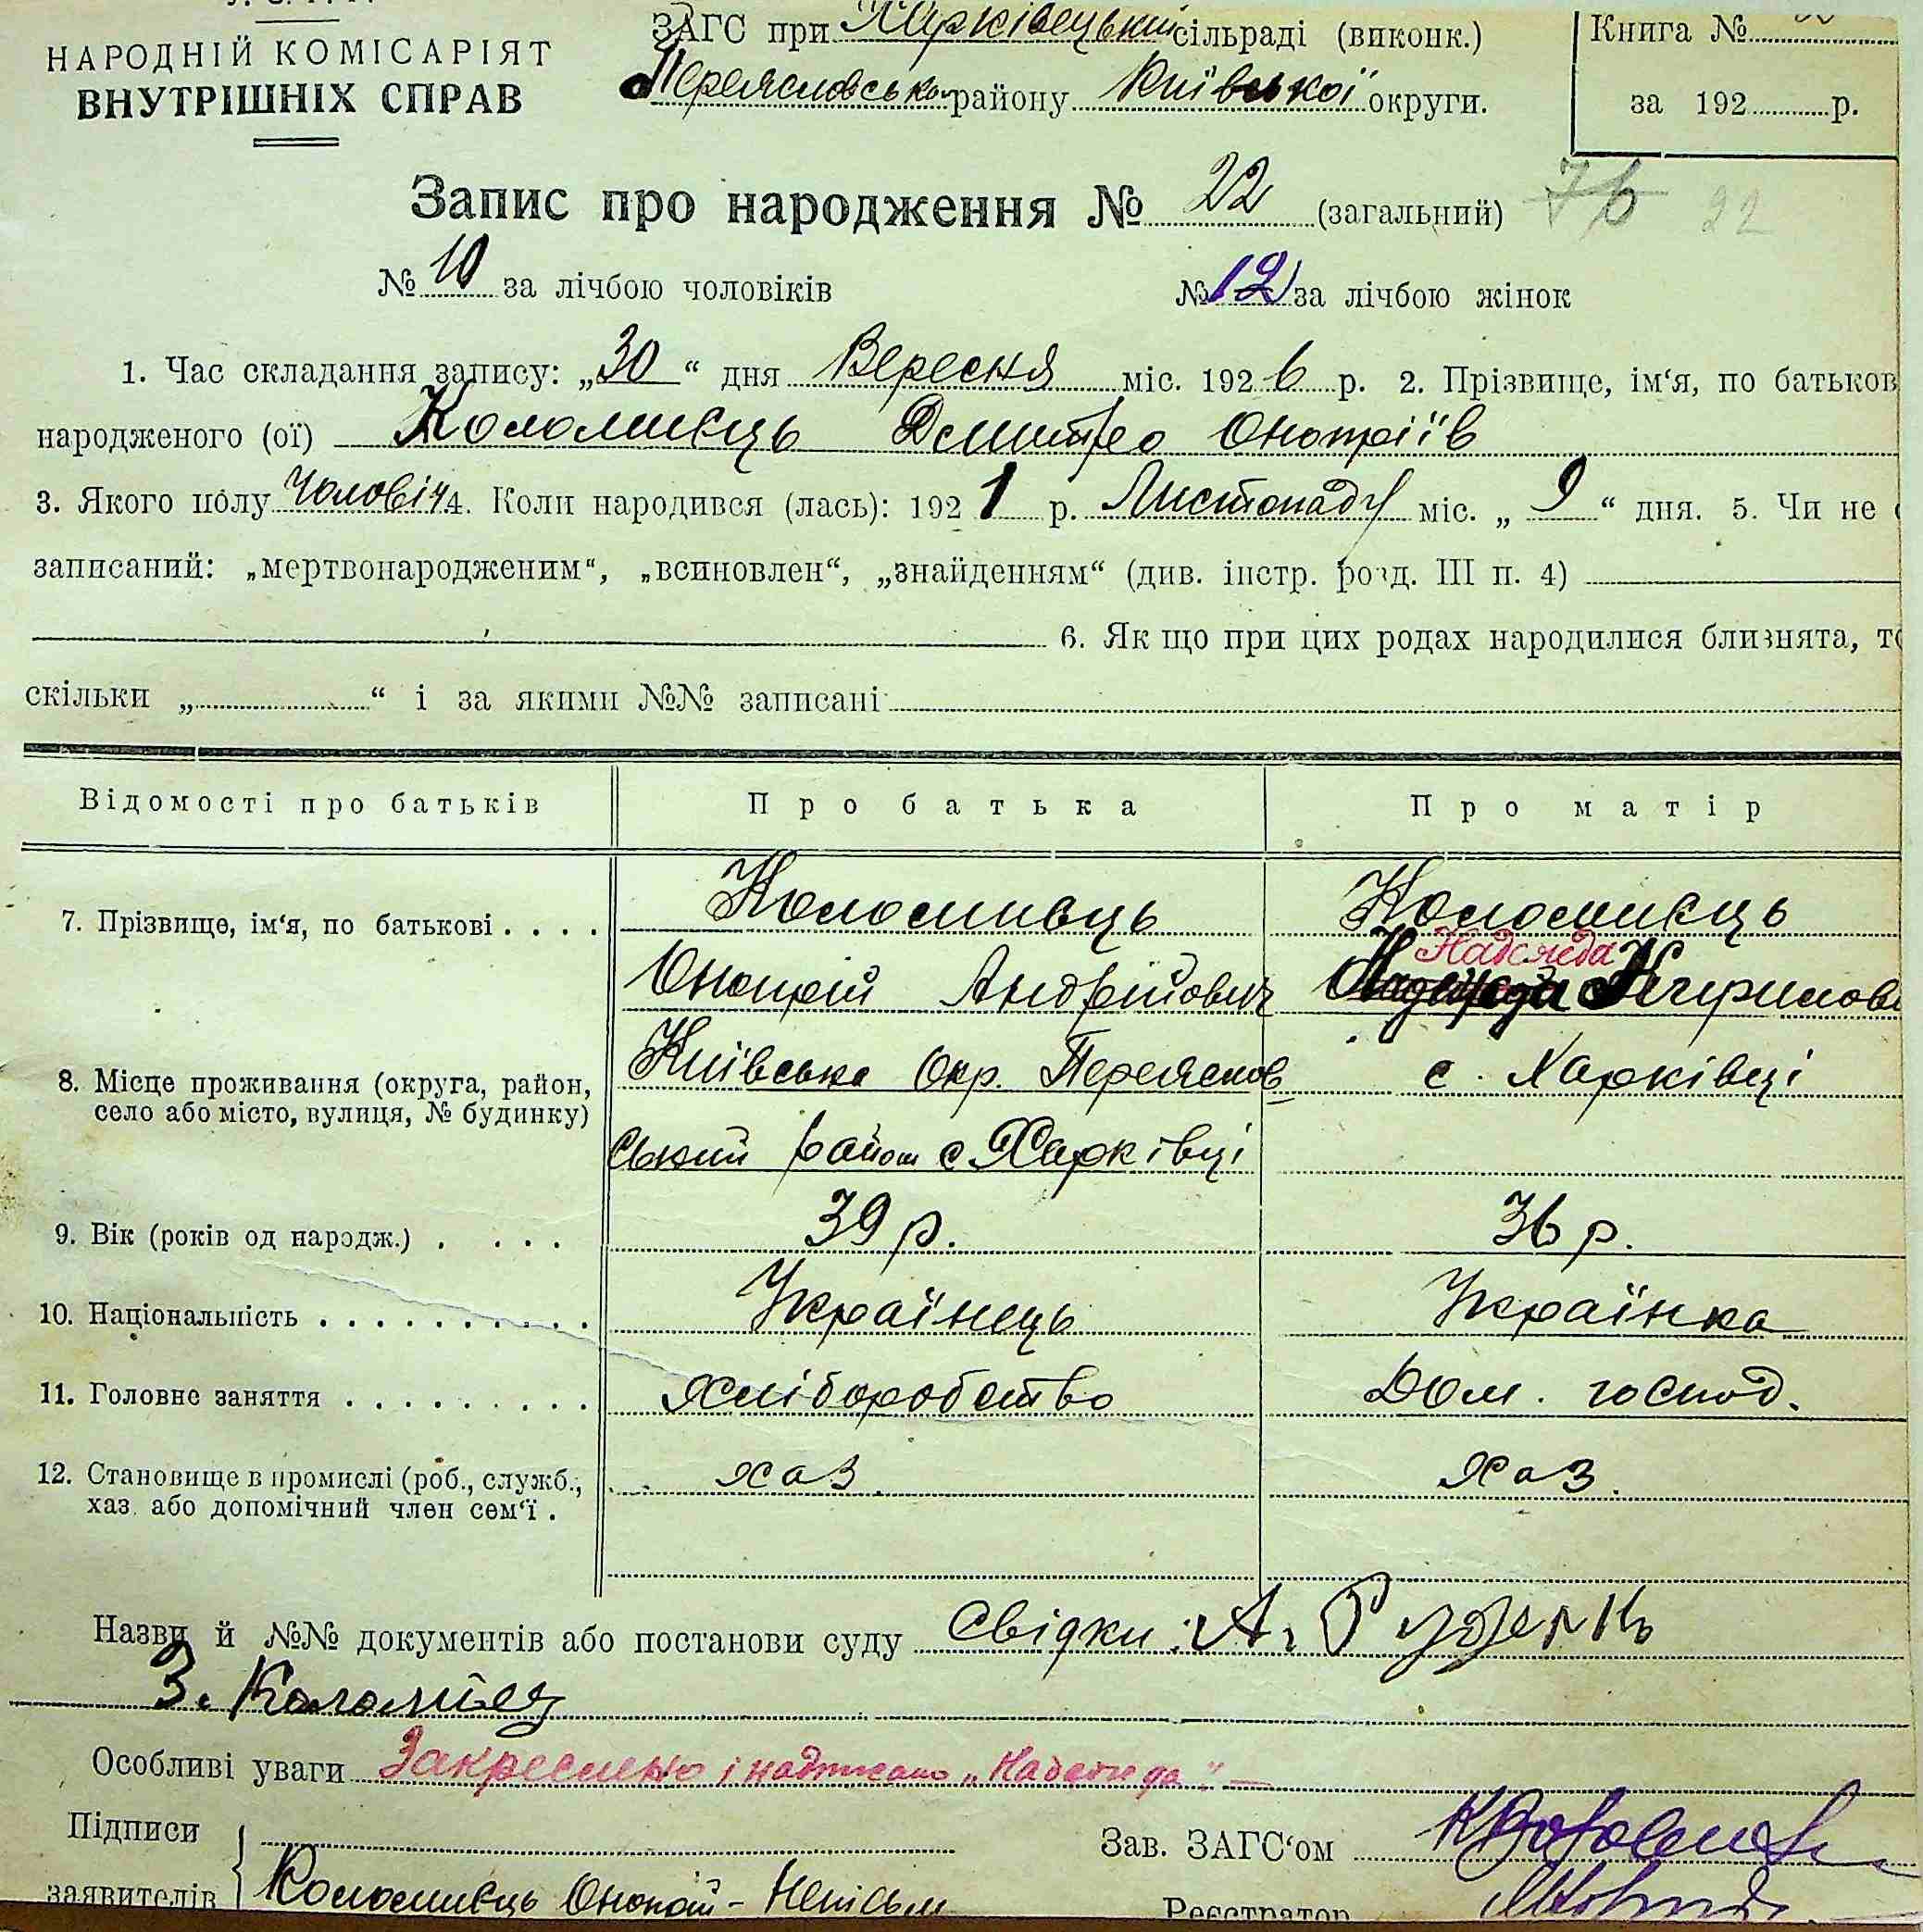 НАРОДНІЙ КОМІСАРІЯТ
ВНУТРІШНІХ СПРАВ
ЗАГС при Харківецькій сільраді (виконк.)
Переясловськом району Київської округи.
Книга №
за 192 р.
Запис про народження № 22 (загальний) 76 22
№ 10 за лічбою чоловіків № 12 за лічбою жінок
1. Час складання запису: „30“ дня Вересня міс. 1926 р. 2. Прізвище, ім‘я, по батьков
народженого (ої) Коломиєць Дмитро Онопріїв
3. Якого полу Чоловіч 4. Коли народився (лась): 1921 р. Листопаду міс. „9“ дня. 5. Чи не
записаний: „мертвонародженим“, „всиновлен“, „знайденням“ (див. інстр. розд. III п. 4)
6. Як що при цих родах народилися близнята, то
скільки „ “ і за якими №№ записані
Відомості про батьків Про батька Про матір
7. Прізвище, ім‘я, по батькові Коломиєць Коломиєць
Надежда
Онопрій Андрійович
8. Місце проживання (округа, район, село або місто, вулиця, № будинку) Київська Окр. Переяслов с. Харківці
ський район с Харківці
9. Вік (років од народж.) 39 р. 36 р.
10. Національність Українець Українка
11. Головне заняття Хліборобство Дом. господ.
12. Становище в промислі (роб., служб., хаз. або допомічний член сем‘ї. хаз. хаз.
Назви й №№ документів або постанови суду Свідки: А.
З. Коломієц
Особливі уваги Закреслено і надписано „Надежда“ —
Підписи
Зав. ЗАГС‘ом
заявителів Коломиєць Онопрій - Неписьм
Реєстратор